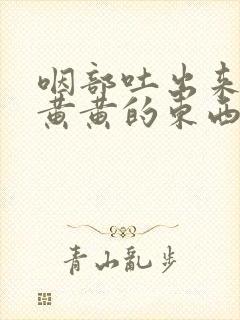 咽部吐出来
黄黄的东西
青山乱步